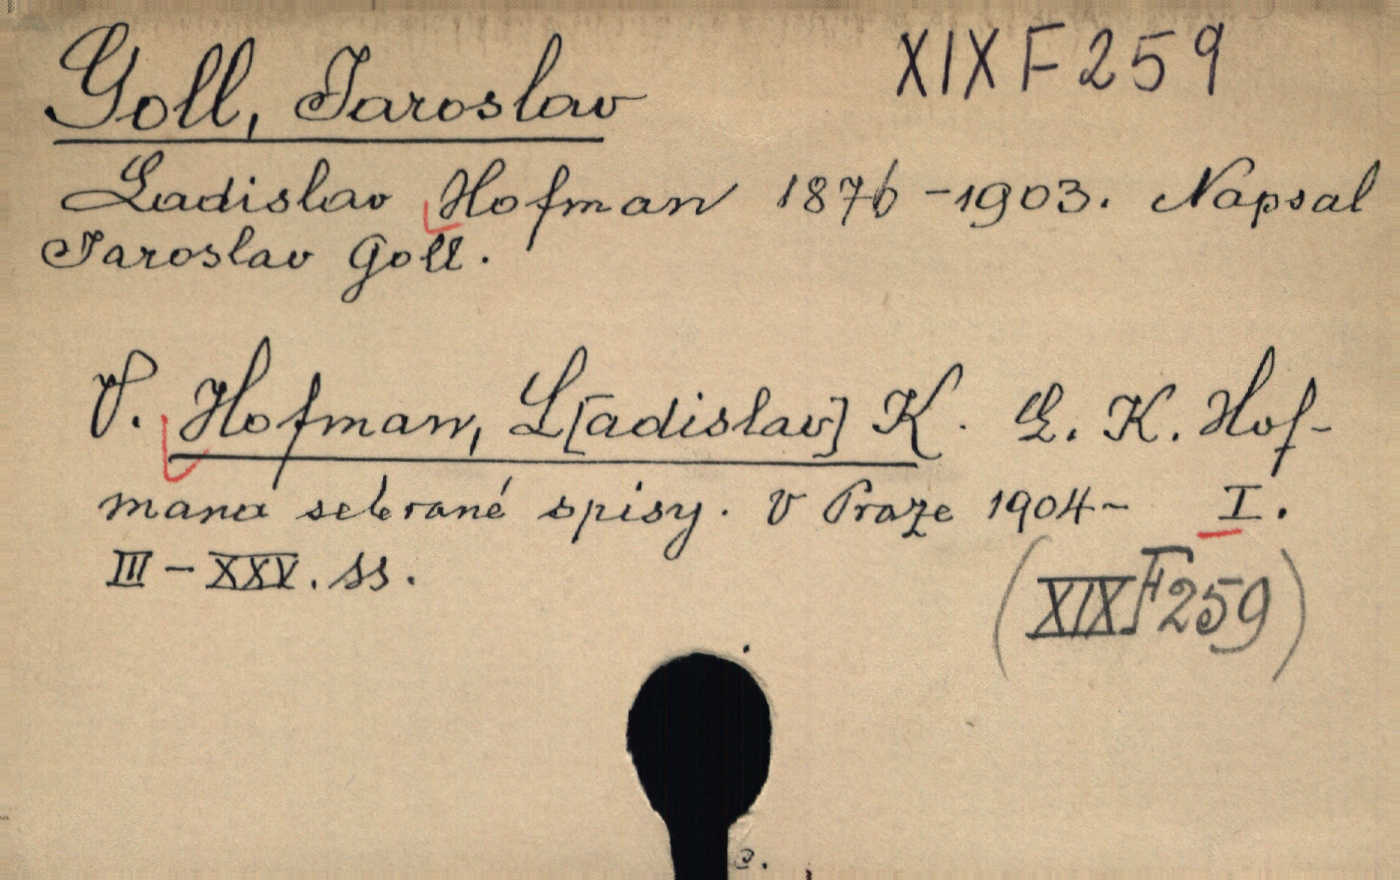 Goll, Jaroslav XIX F 259
Ladislav Hofman 1876-1903. Napsal
Jaroslav Goll.
V. Hofman, L[adislav] K. L. K. Hof-
mana sebrané spisy. V Praze 1904- I.
III-XXV. ss.
(XIX F 259)